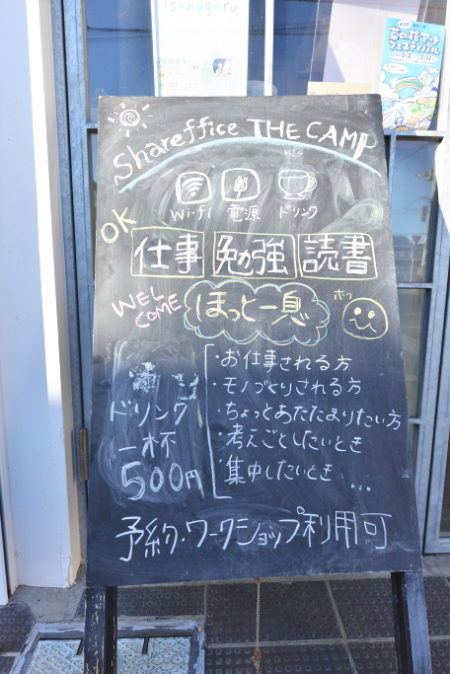 Tsunagaru
菜の花アート
フェスティバル
Shareffice THE CAMP
Wi-Fi 電源 ドリンク
OK
仕事 勉強 読書
WELCOME
ほっと一息
ホッ
ドリンク
一杯
500円
・お仕事される方
・モノづくりされる方
・ちょっとあたたまりたい方
・考えごとしたいとき
・集中したいとき ...
予約・ワークショップ利用可